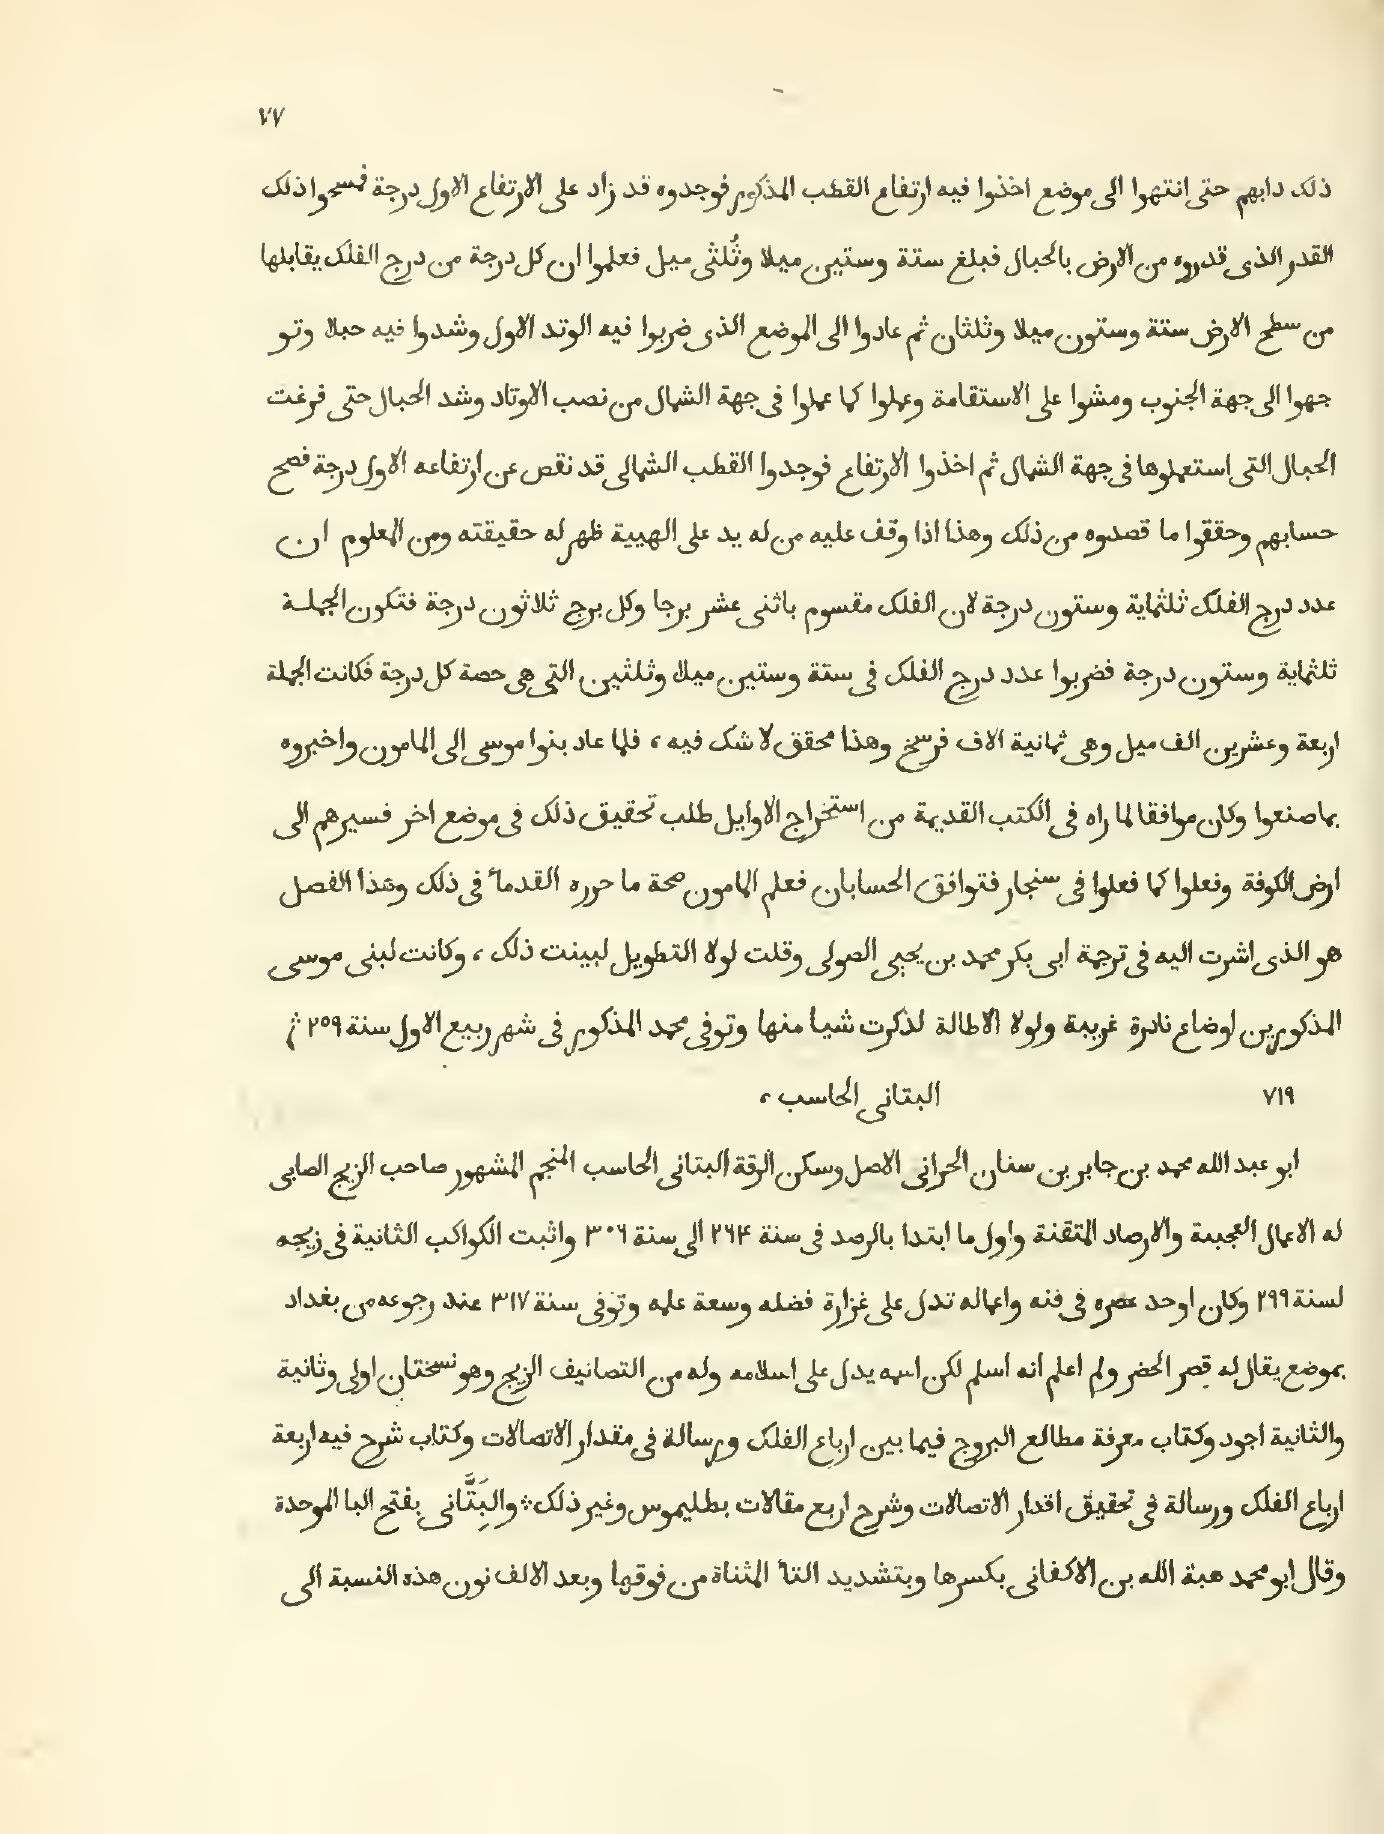 ٧٧
ذلك دابهم حتى انتهوا الى موضع اخذوا فيه ارتفاع القطب المذكور فوجدوه قد زاد على الارتفاع الاول درجة فمسحوا ذلك
القدر الذى قدروه من الارض بالحبال فبلغ ستة وستين ميلا وثُلثى ميل فعلموا ان كل درجة من درج الفلك يقابلها
من سطح الارض ستة وستون ميلا وثلثان ثم عادوا الى الموضع الذى ضربوا فيه الوتد الاول وشدوا فيه حبلا وتو
جهوا الى جهة الجنوب ومشوا على الاستقامة وعملوا كما عملوا فى جهة الشمال من نصب الاوتاد وشد الحبال حتى فرغت
الحبال التى استعملوها فى جهة الشمال ثم اخذوا الارتفاع فوجدوا القطب الشمالى قد نقص عن ارتفاعه الاول درجة فصح
حسابهم وحققوا ما قصدوه من ذلك وهذا اذا وقف عليه من له يد على الهيية ظهر له حقيقته ومن المعلوم ان
عدد درج الفلك ثلثماية وستون درجة لان الفلك مقسوم باثنى عشر برجا وكل برج ثلاثون درجة فتكون الجملة
ثلثماية وستون درجة فضربوا عدد درج الفلك فى ستة وستين ميلا وثلثين التى هى حصة كل درجة فكانت الجملة
اربعة وعشرين الف ميل وهى ثمانية الاف فرسخ وهذا محقق لا شك فيه، فلما عاد بنوا موسى الى المامون واخبروه
بما صنعوا وكان موافقا لما راه فى الكتب القديمة من استخراج الاوايل طلب تحقيق ذلك فى موضع اخر فسيرهم الى
ارض الكوفة وفعلوا كما فعلوا فى سنجار فتوافق الحسابان فعلم المامون صحة ما حرره القدمأ فى ذلك وهذا الفصل
هو الذى اشرت اليه فى ترجمة ابى بكر محمد بن يحيى الصولى وقلت لولا التطويل لبينت ذلك، وكانت لبنى موسى
المذكورين اوضاع نادرة غريبة ولولا الاطالة لذكرت شيا منها وتوفى محمد المذكور فى شهر ربيع الاول سنة ٢٥٩
٧١٩ البتانى الحاسب،
ابو عبد الله محمد بن جابر بن سنان الحرانى الاصل وسكن الرقة البتانى الحاسب المنجم المشهور صاحب الزيج الصابى
له الاعمال العجيبة والارصاد المتقنة واول ما ابتدا بالرصد فى سنة ٢٦٤ الى سنة ٣٠٦ واثبت الكواكب الثانية فى زيجه
لسنة ٢٩٩ وكان اوحد عصره فى فنه واعماله تدل على غزارة فضله وسعة علمه وتوفى سنة ٣١٧ عند رجوعه من بغداد
بموضع يقال له قصر الحضر ولم اعلم انه اسلم لكن اسمه يدل على اسلامه وله من التصانيف الزيج وهو نسختان اولى وثانية
والثانية اجود وكتاب معرفة مطالع البروج فيما بين ارباع الفلك ورسالة فى مقدار الاتصالات وكتاب شرح فيه اربعة
ارباع الفلك ورسالة فى تحقيق اقدار الاتصالات وشرح اربع مقالات بطليموس وغير ذلك والبَِتَّانى بفتح البا الموحدة
وقال ابو محمد هبة الله بن الاكفانى بكسرها وبتشديد التأ المثناة من فوقها وبعد الالف نون هذه النسبة الى